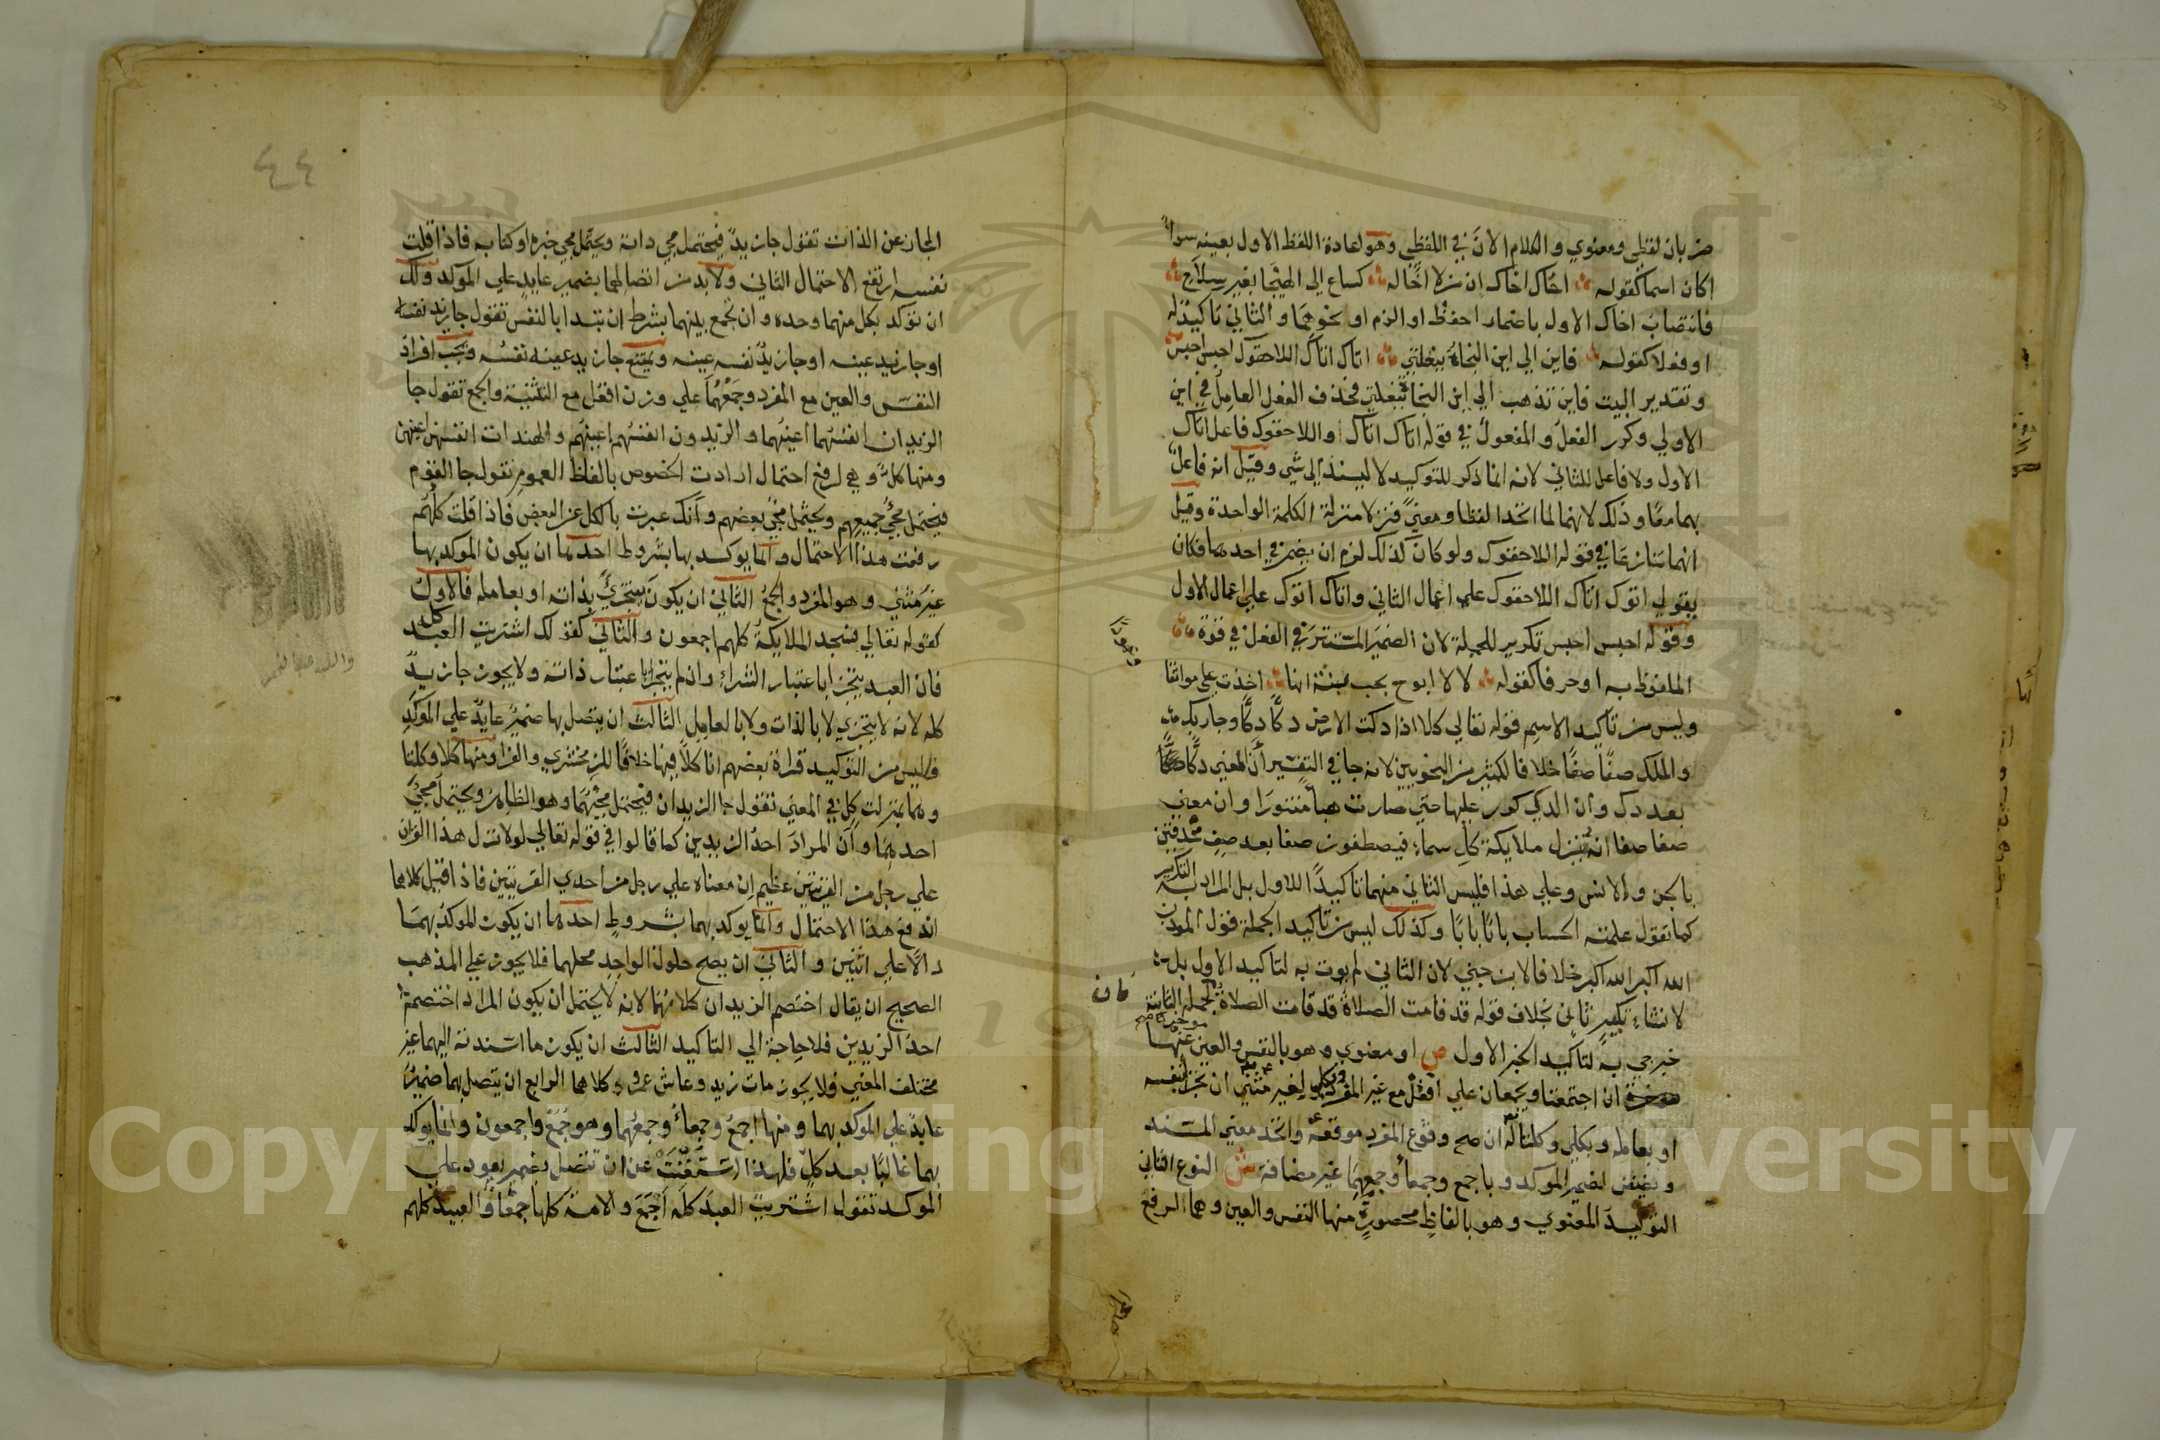 ضربان لفظي ومعنوي والكلام الان في اللفظي وهو اعادة اللفظ الاول بعينه سواء
اكان اسما كقوله اخاك اخاك ان من لا اخا له كساع الى الهيجا بغير سلاح
فانتصاب اخاك الاول باضمار احفظ او الزم او نحوهما والثاني تاكيد له
او فعلا كقوله فاين الي اين النجاة ببغلتي اتاك اتاك اللاحقوك احبس احبس
وتقدير البيت فاين تذهب الي اين النجا ببغلتي فحذف الفعل العامل في اين
الاولي وكرر الفعل والمفعول في قوله اتاك اتاك واللاحقوك فاعل اتاك
الاول ولا فاعل للثاني لانه انما ذكر للتوكيد لا ليسند الي شي وقيل انه فاعل
بهما معا وذلك لانهما لما اتحدا لفظا ومعني نزلا منزلة الكلمة الواحدة وقيل
انهما تنازعا في قوله اللاحقوك ولو كان كذلك لزم ان يضمر في احدهما فكان
يقول اتوك اتاك اللاحقوك علي اعمال الثاني واتاك اتوك علي اعمال الاول
وقوله احبس احبس تكرير للجملة لان الضمير المستتر في الفعل في قوة
الملفوظ به او حرفا كقوله لا لا ابوح بحب بثنة انها اخذت علي مواثقا
وليس من تاكيد الاسم قوله تعالي كلا اذا دكت الارض دكا دكا وجا ربك
والملك صفا صفا خلافا لكثير من النحويين لانه جا في التفسير ان المعني دكا
بعد دك وان الدك كور عليها حتي صارت هبا منثورا وان معني
صفا صفا انه تنزل ملايكة كل سماء فيصطفون صفا بعد صف محدقين
بالجن والانس وعلي هذا فليس الثاني منهما تاكيدا للاول بل المراد به التكرير
كما تقول علمته الحساب بابا بابا وكذلك ليس من تاكيد الجملة قول المؤذن
الله اكبر الله اكبر خلافا لابن جني لان الثاني لم يوت به لتاكيد الاول بل
لانشاء تكبير ثان بخلاف قوله قد قامت الصلاة قد قامت الصلاة
خبر جي به لتاكيد الخبر الاول ص او معنوي وهو بالنفس والعين
ان اجتمعتا ويجمعان علي افعل مع غير المفرد وبكل لغير مثني ان تجزا بنفسه
او بعامله وبكلي وكلتا له ان صح وقوع المفرد موقعه واتحد معني المسند
ويضفن لضمير المؤكد وباجمع وجمعا وجمعهما غير مضافة ش النوع الثاني
التوكيد المعنوي وهو بالفاظ محصورة منها النفس والعين وهما لرفع
٤٤
المجاز عن الذات تقول جا زيد فيحتمل مجي ذاته ويحتمل مجي خبره او كتابه فاذا قلت
نفسه ارتفع الاحتمال الثاني ولا بد من اتصالهما بضمير عايد علي المؤكد ولك
ان توكد بكل منهما وحده وان تجمع بينهما بشرط ان تبدا بالنفس تقول جا زيد نفسه
او جا زيد عينه او جا زيد نفسه عينه ويمتنع جا زيد عينه نفسه ويجب افراد
النفس والعين مع المفرد وجمعهما علي وزن افعل مع التثنية والجمع تقول جا
الزيدان انفسهما اعينهما والزيدون انفسهم اعينهم والهندات انفسهن اعينهن
ومنها كل وهي لرفع احتمال ارادت الخصوص بالفاظ العموم تقول جا القوم
فيحتمل مجي جميعهم ويحتمل مجي بعضهم وانك عبرت بالكل عن البعض فاذا قلت كلهم
رفعت هذا الاحتمال وانما يوكد بها بشروط احدها ان يكون الموكد بها
غير مثني وهو المفرد والجمع الثاني ان يكون يتجزي بذاته او بعامله فالاول
كقوله تعالي فسجد الملايكة كلهم اجمعون والثاني كقولك اشتريت العبد كله
فان العبد يتجزا باعتبار الشراء وان لم يتجزا باعتبار ذاته ولا يجوز جا زيد
كله لانه لا يتجزي لا بالذات ولا بالعامل الثالث ان يتصل بها ضمير عايد علي المؤكد
فليس من التوكيد قراة بعضهم انا كلا فيها خلافا للزمخشري والفرا ومنها كلا وكلتا
وهما بمنزلت كل في المعني تقول جا الزيدان فيحتمل مجيئهما وهو الظاهر ويحتمل مجي
احدهما وان المراد احد الزيدين كما قالوا في قوله تعالي لولا نزل هذا القران
علي رجل من القريتين عظيم ان معناه علي رجل من احدي القريتين فاذا قيل كلاهما
اندفع هذا الاحتمال وانما يوكد بهما بشروط احدها ان يكون الموكد بهما
دالا علي اثنين والثاني ان يصح حلول الواحد محلهما فلا يجوز علي المذهب
الصحيح ان يقال اختصم الزيدان كلاهما لانه لا يحتمل ان يكون المراد اختصم
احد الزيدين فلا حاجة الي التاكيد الثالث ان يكون ما اسندته اليهما غير
مختلف المعني فلا يجوز مات زيد وعاش عمرو كلاهما الرابع ان يتصل بهما ضمير
عايد علي المؤكد بهما ومنها اجمع وجمعاء وجمعهما وهو جمع واجمعون وانما يوكد
بهما غالبا بعد كل فلهذا استغنت عن ان تتصل بضمير يعود علي
المؤكد تقول اشتريت العبد كله اجمع والامة كلها جمعا والعبيد كلهم
Copyright © King Saud University